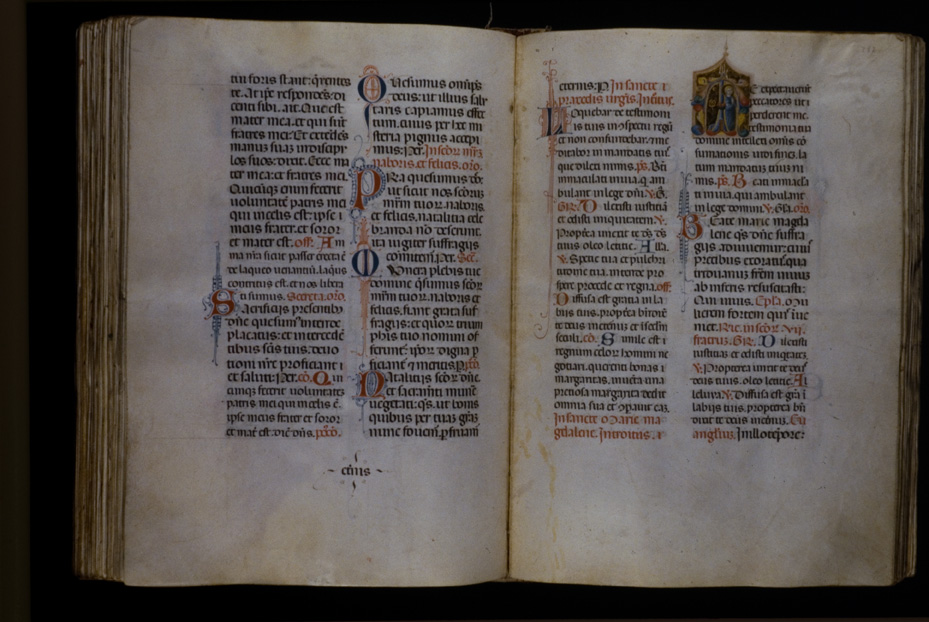 tui foris stant: q̄rentes
te. At ip̄e respondēs: di
centi sibi. ait. Que est
mater mea. et qui sūt
fratres mei: Et extēdēs
manus suas in discip̄
los suos: dixit. Ecce m̄
ter mea: et fratres mei.
Quicūq; enim fecerit
voluntatē patris mei
qui in celis est: ip̄se
meus frater. et soror
et mater est. off. An
ma nr̄a sicut passer erepta ē
de laqueo venantiū. laqus
contritus est. et nos libera
ti sumus. Secreta. or̄o.
Sacrificijs presentib;
dn̄e quesum; intende
placatus: et intercedē
tibus sc̄is tuis: deuo
tioni nr̄e proficiant
et saluti. Per. cō. Qui
cumq; fecerit voluntatē
patris mei qui in celis ē.
ip̄se meus frater et soror
et mat̄ est. dic̄ dn̄s. p̄cō.
Quesumus omip̄s
deus: ut illius salu
taris capiamus effec
tum. cuius per hec mi
steria pignus accepi
mus: Per. In sc̄or; mr̄z
naboris. et felicis. or̄o.
Presta quesumus dn̄e
ut sicut nos sc̄oruz
mr̄m tuor; naboris.
et felicis. natalitia cele
branda nō deserunt.
ita iugiter suffragijs
comitent̄. Per. Sec̄.
Munera plebis tue
domine q̄sumus sc̄or;
mr̄m tuor; naboris et
felicis. fiant grata suf
fragijs: et quor; trium
phis tuo nomini of
ferunt̄. ip̄or; digna p̄
ficiant̄ et meritis. P. cō.
Natalitijs sc̄or; dn̄e.
et sacramēti mun̄e
uegetati: qs̄. ut bonis
quibus per tuaz grāz
nunc fouem̄. p̄fruam̄
ctnis
eternis. P. In sancte
praxedis uirgīs. Introitus.
Loquebar de testimoni
is tuis in 9spectu regū
et non confundebar: et me
ditabar in mandatis tuis
que dilexi nimis. ps. Bti
immaculati in uia. q̄ am
bulant in lege dn̄i. V. G.
GR. Dilexisti iustitiā
et odisti iniquitatem. V.
Propt̄ea unxit te ds̄ ds̄
tuus oleo letitie. Alla.
V. Specie tua et pulchri
tudine tua. intende pro
spere procede et regna. off.
Diffusa est gratia in la
bijs tuis. propt̄ea bn̄dixit
te deus in eternū et in sc̄lm
sc̄culi. cō. Simile est
regnum celor; homini ne
gotiatori. querenti bonas
margaritas. inuēta una
pretiosa margarita dedit
omnia sua et 9parauit eaz.
In sancte Marie ma
gdalene. Introitus.
Me expectauerūt
peccatores ut
perderent me.
testimonia tua
domine intellexi omīs cō
sumationis uidi finez. la
tum mandatuz tuuz ni
mis. ps. Beati immacula
ti in uia. qui ambulant
in lege domini. V. Gl̄a. or̄o.
Beate marie magda
lene qs̄ dn̄e suffra
gijs adiuuemur: cuius
precibus exoratus. qua
triduanuz frēm uiuuz
ab inferis resuscitasti:
Qui uiuis. Epl̄a. Mu
lierem fortem quis inue
niet. Rīe. in sc̄or; vii.
fratruz. GR. Dilexisti
iustitiaz et odisti iniq̄tatez.
V. Propterea unxit te deus
deus tuus. oleo letitie. Al
leluia. V. Diffusa est grā i
labijs tuis. propterea bn̄
dixit te deus in eternū. Eu
angeliuz. In illo tēpore: